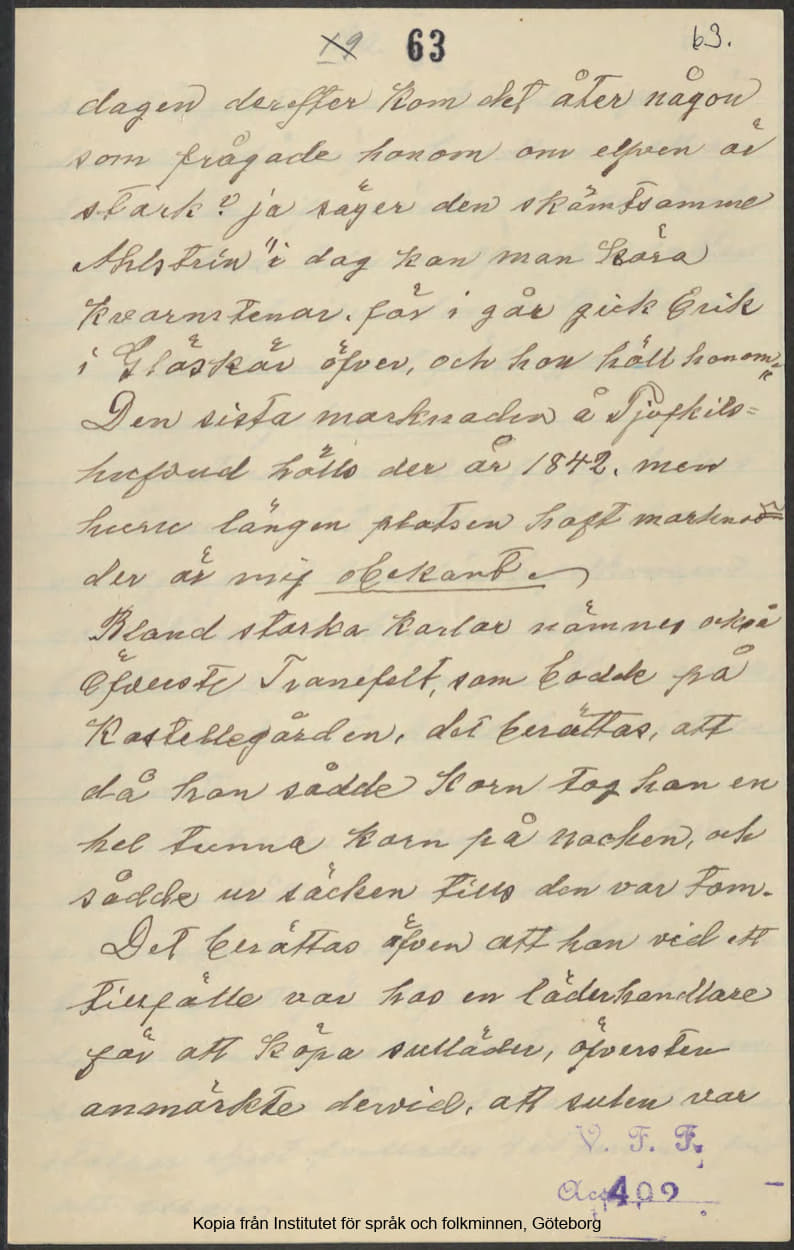 19 63 63.
dagen derefter kom det åter någon
som frågade honom om elfven är
stark? ja säger den skämtsamme
Ahlström "i dag kan man köra
kvarnstenar. för i går gick Erik
i Glöskär öfver, och hon höll honom."
Den sista marknaden å Tjufkils=
hufvud hölls der år 1842. men
huru längen platsen haft markna=
der är mig obekant.
Bland starka karlar nämnes också
Öfverste Tranefelt, som bodde på
Kastellegården, det berättas, att
då han sådde korn tog han en
hel tunna korn på nacken, och
sådde ur säcken tills den var tom.
Det berättas äfven att han vid ett
tillfälle var hos en läderhandlare
för att köpa sulläder, öfversten
anmärkte dervid, att sulen var
V. F. F.
Acc 409
Kopia från Institutet för språk och folkminnen, Göteborg